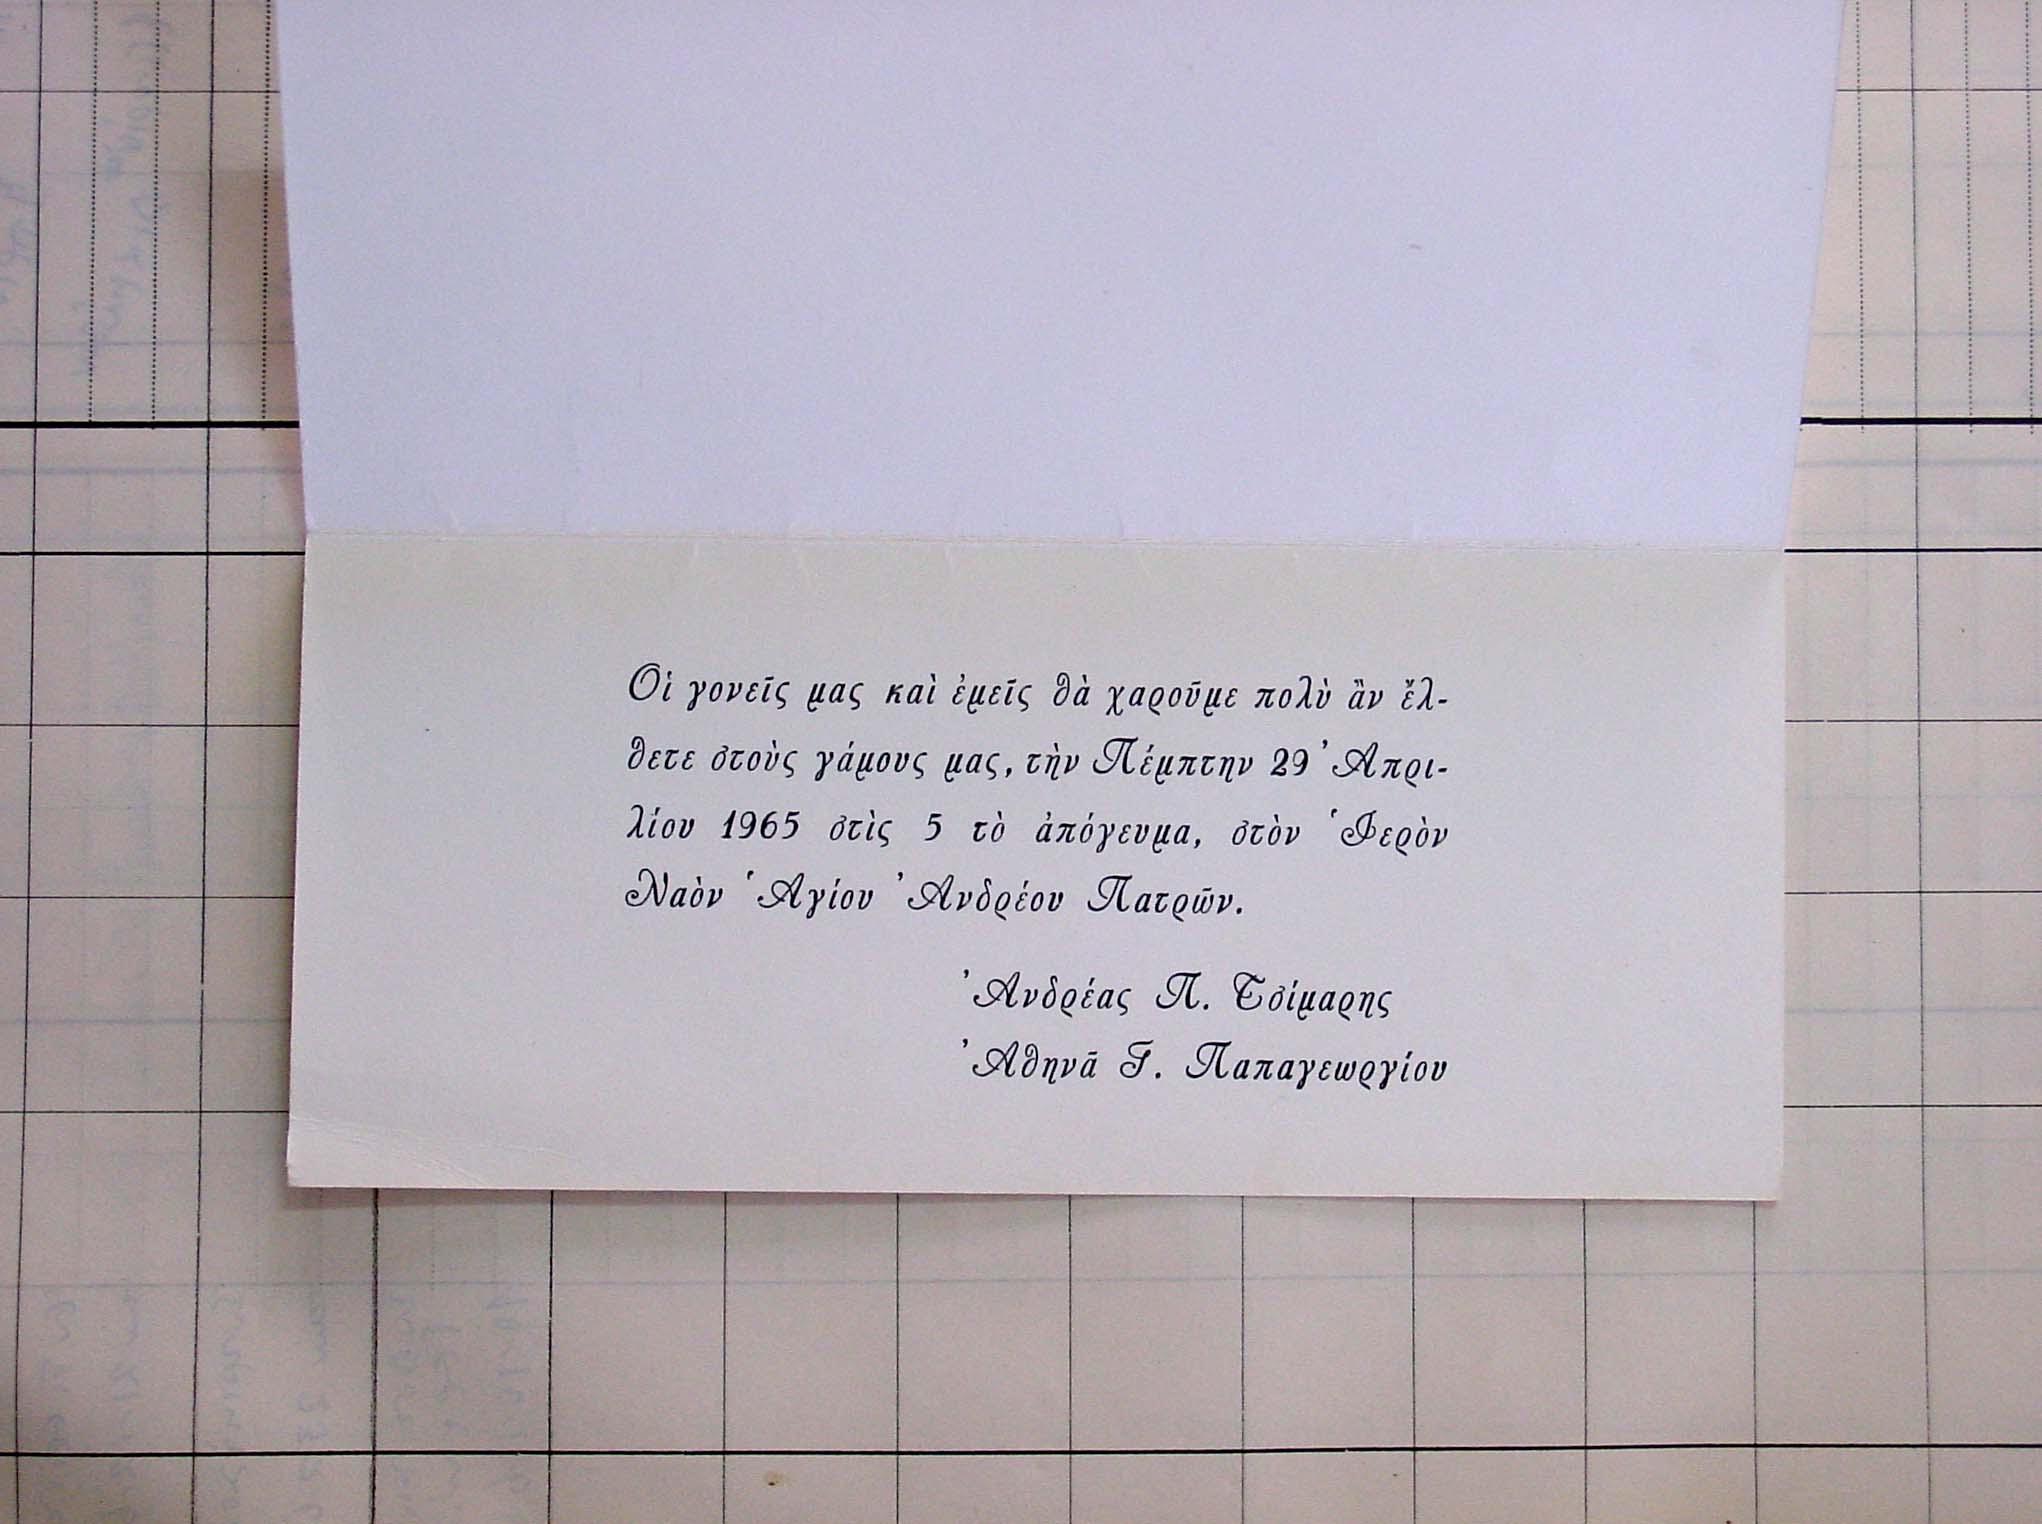 Οἱ γονεῖς μας καὶ ἐμεῖς θὰ χαροῦμε πολὺ ἂν ἔλ-
θετε στοὺς γάμους μας, τὴν Πέμπτην 29 Ἀπρι-
λίου 1965 στὶς 5 τὸ ἀπόγευμα, στὸν Ἱερὸν
Ναὸν Ἁγίου Ἀνδρέου Πατρῶν.
Ἀνδρέας Π. Τσίμαρης
Ἀθηνᾶ Γ. Παπαγεωργίου